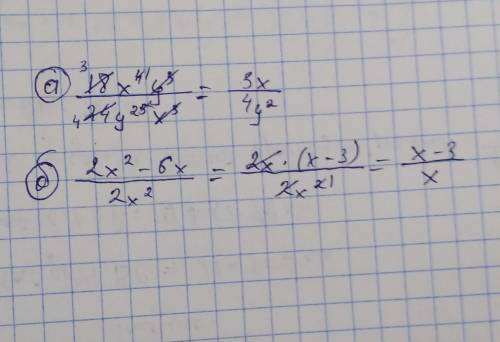 а) 18x⁴y³ / 24y⁵x³ = 3x / 4y²
б) 2x² - 6x / 2x² = 2x · (x - 3) / 2x² = x - 3 / x